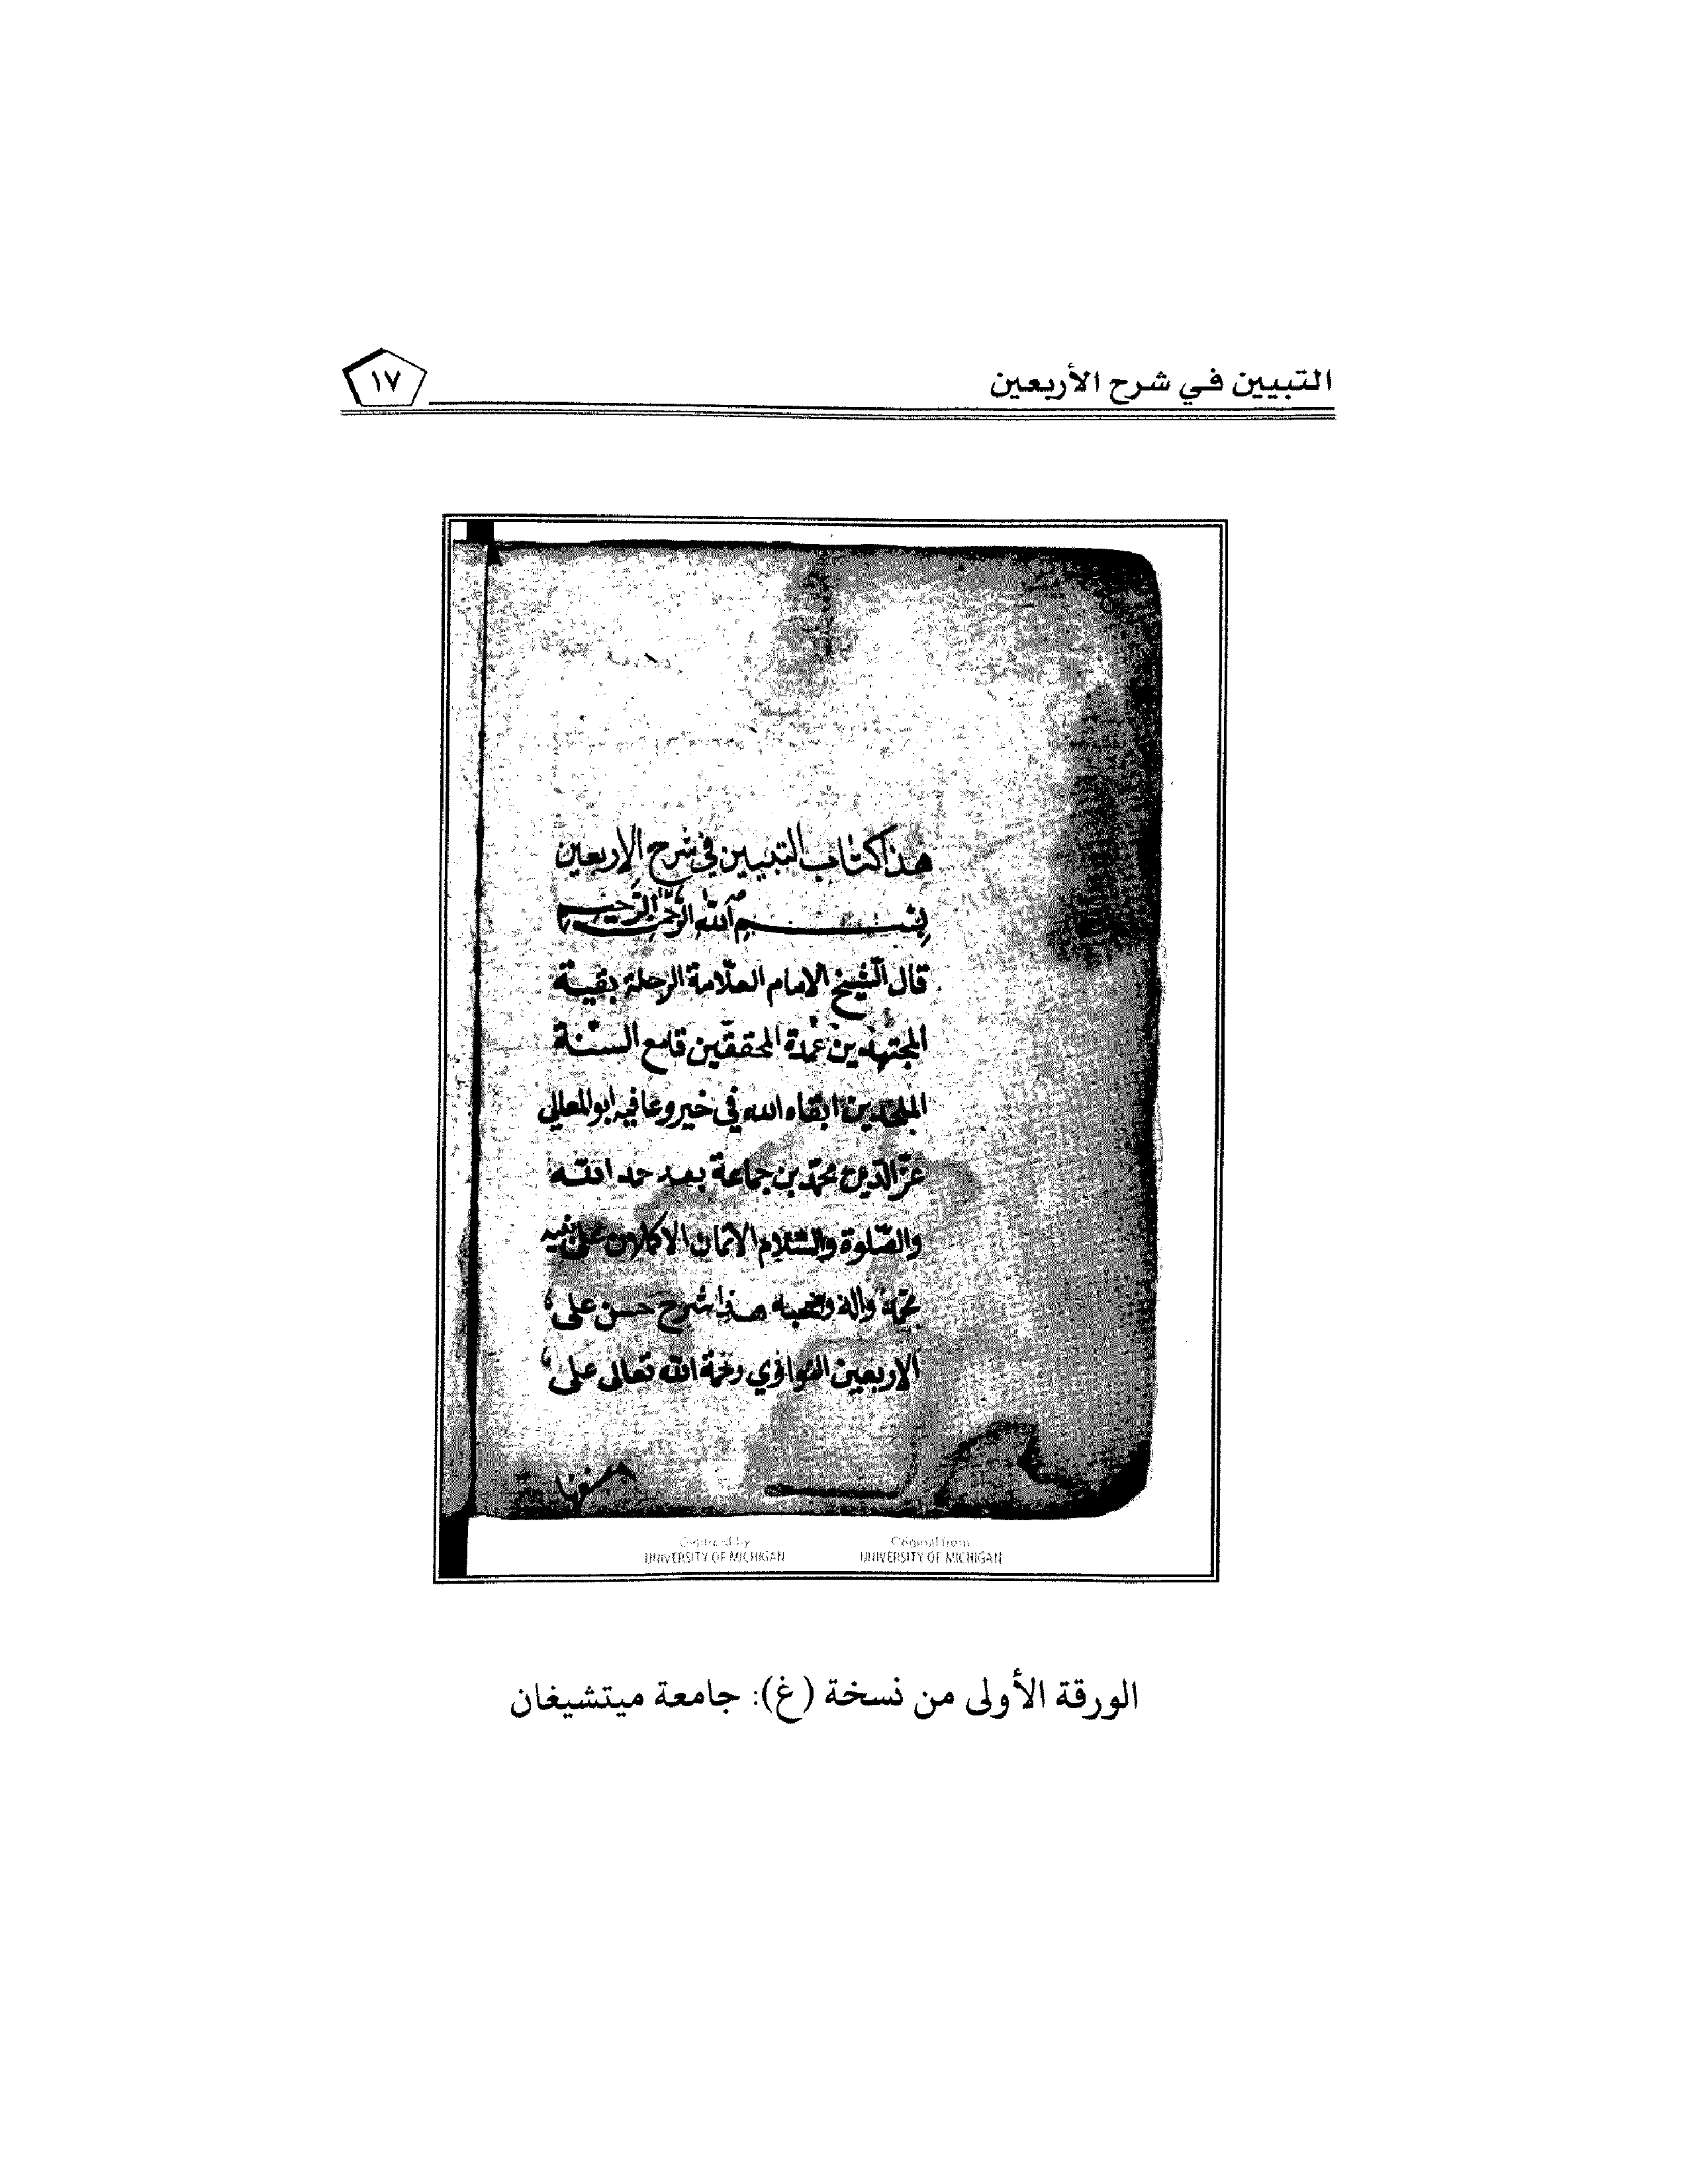 التبيين في شرح الأربعين
١٧
هذا كتاب التبيين في شرح الاربعين
بسم الله الرحمن الرحيم
قال الشيخ الامام العلامة الرحلة بقية
المجتهدين عمدة المحققين قامع السنة
الملحدين ابقاه الله في خير وعافيه ابو المعالي
عز الدين محمد بن جماعة بعد حمد الله
والصلوة والسلام الاتمان الاكملان على نبيه
محمد واله وصحبه هذا شرح حسن على
الاربعين النواوي رحمة الله تعالى على
UNIVERSITY OF MICHIGAN
Original from
UNIVERSITY OF MICHIGAN
الورقة الأولى من نسخة (غ): جامعة ميتشيغان